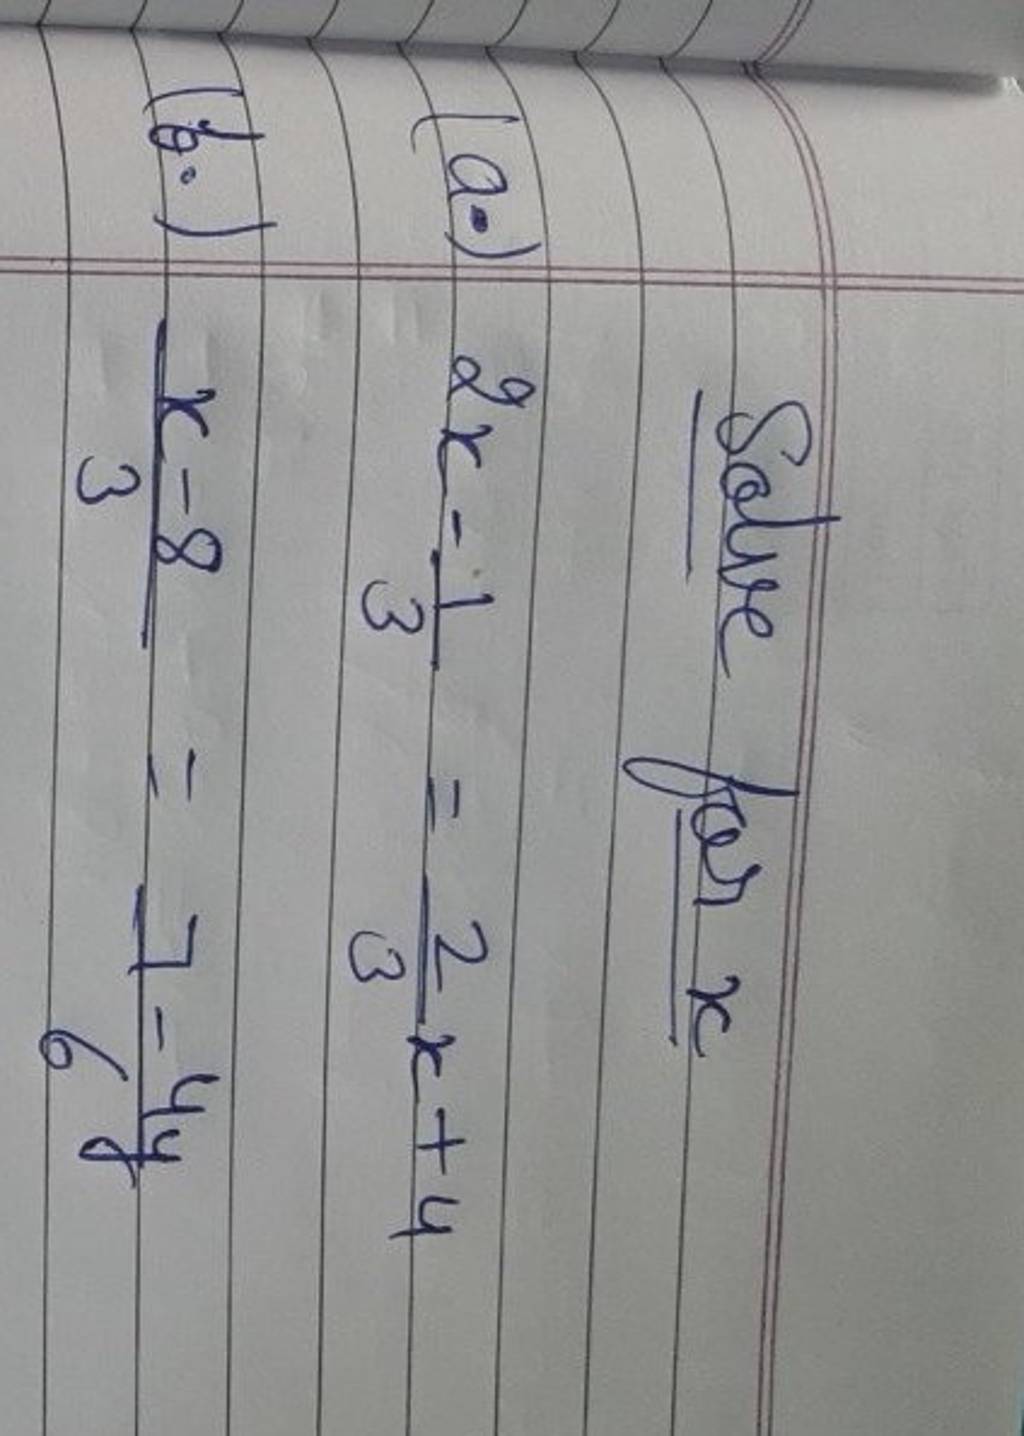 Solve for x
(a.) 2x - 1/3 = 2/3 x + 4
(b.) x - 8/3 = 7 - 4y/6